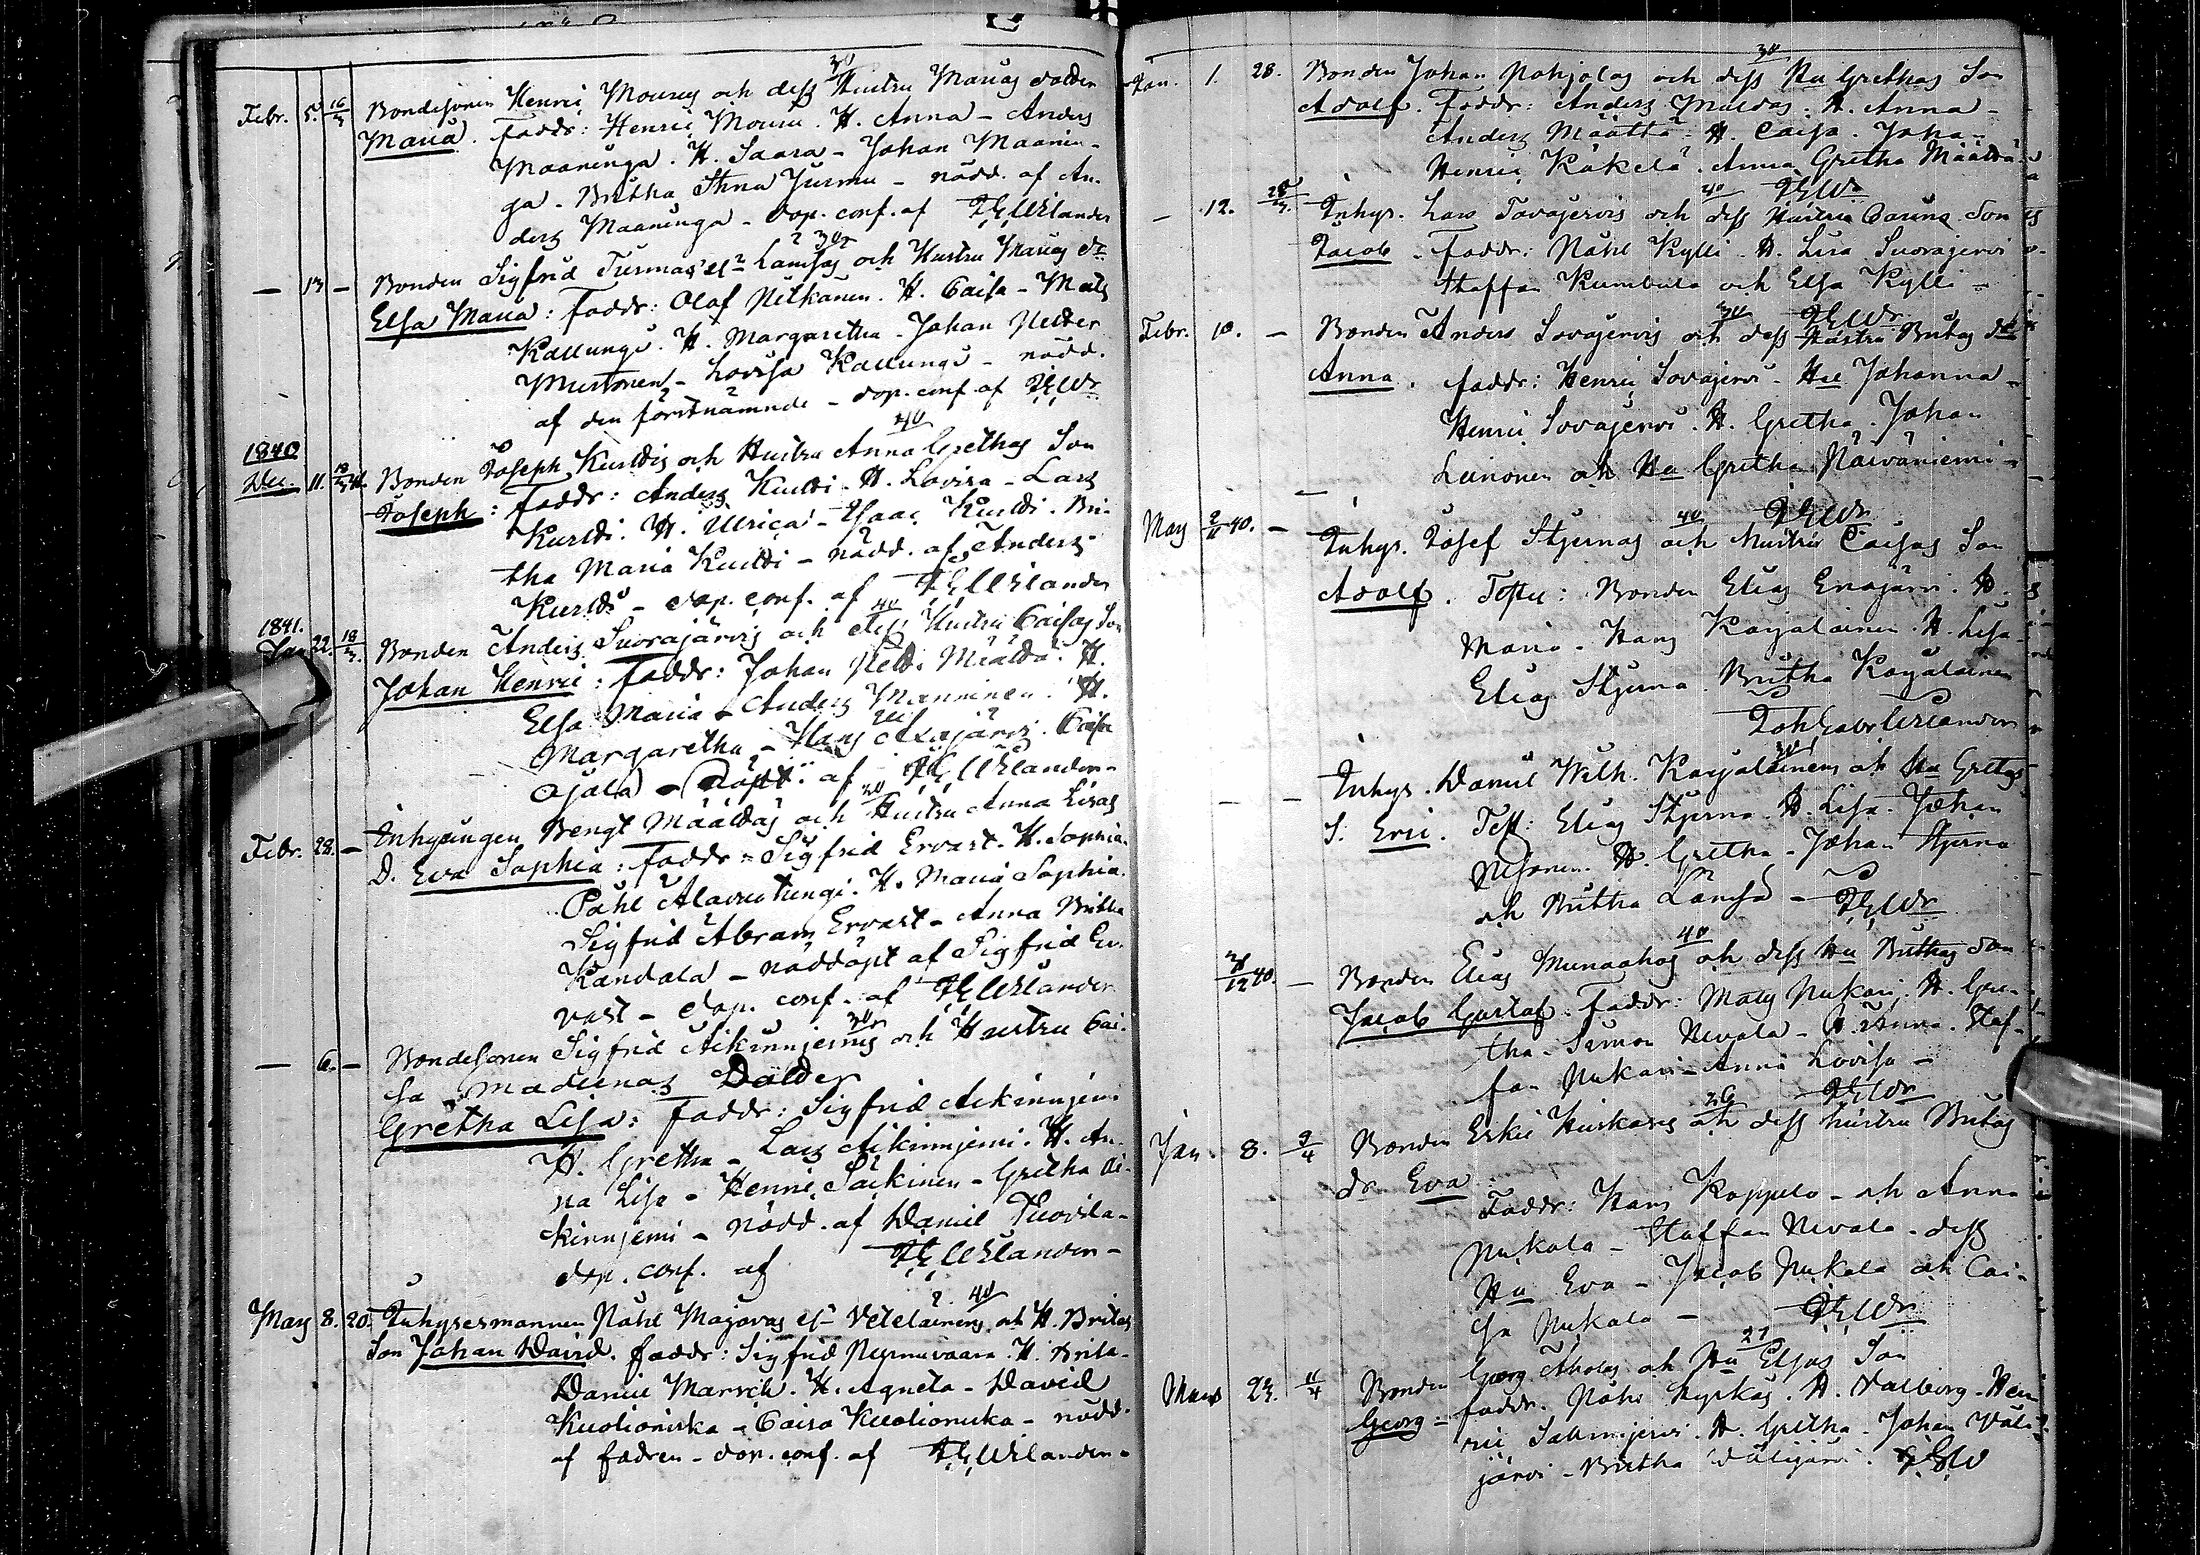 Febr. 5. 16/3 Bondesonen Henric Mourus och dess Hustru Marias dotter
Maria. faddr: Henric Mouru. H. Anna - Anders
Maaninga. H. Saara - Johan Maanin-
ga - Britha Stina Jurmu - nödd. af An-
ders Maaninga - dop. conf. af
— 13 — Bonden Sigfrid och Hustru Marias dr
Elsa Maria: faddr: Olof Pitkänen. H. Caisa - Mats
Kallungi. H. Margaretha - Johan Petter
Mustonen - Lovisa Kallungi - nödd.
af den förstnämnde - dop. conf. af
1840
Dec. 11. Bonden Joseph Kurttis och Hustru Anna Grethas Son
Joseph: faddr: Anders Kurtti. H. Lovisa - Lars
Kurtti. H. Ulrica - Isaac Kurtti. Bri-
tha Maria Kurtti - nödd. af Anders
Kurtti - dop. conf. af
1841.
Jan 22. 18/3. Bonden Anders Suorajärvis och dess Hustru Caisas Son
Johan Henric: faddr: Johan Petter Määttä. H.
Elsa Maria - Anders Manninen. H.
Margaretha - Hans Caisa
Ojala - Döpt. af
Febr. 28. — Inhysingen Bengt Määttäs och Hustru Anna Lisas
D. Eva Sophia: faddr: Sigfrid Ervast. H. Sophia.
Påhl Alaruikungi. H. Maria Sophia.
Sigfrid Abram Ervast - Anna Britha
Kandala - nöddöpt af Sigfrid Er-
vast - dop. conf. af
— 6. — Bondesonen Sigfrid och Hustru Cai-
sa Madlenas Dotter
Gretha Lisa: faddr: Sigfrid Aikinnjemi
H. Gretha - Lars Aikinnjemi. H. An-
na Lisa - Henric Säkkinen - Gretha Ai-
kinnjemi - nödd. af Daniel Tuovila -
dop. conf. af
May 8. 20. Inhysesmannen Påhl Majavas och H. Britas
Son Johan David. faddr: Sigfrid Nyrmivaara. H. Brita -
Daniel H. Agneta - David
Kuolioniska - Caisa Kuolioniska - nödd.
af fadren - dop. conf. af
Jan. 1. 28. Bonden Johan Pohjolas och dess Hu Grethas Son
Adolf. Faddr: Anders H. Anna -
Anders Määttä. H. Caisa. Johan
Henric Käkelä. Anna Gretha Määttä
— 12. Inhys. Lars Tavajervis och dess Hustru Carins Son
Jacob. Faddr: Påhl Kylli. H. Lisa Suorajervi
Staffan och Elsa Kylli -
Febr. 10. — Bonden Anders Sovajervis och dess Hustru Britas dr
Anna. faddr: Henric Sovajervi - Hu Johanna -
Henric Sovajervi. H. Gretha. Johan
Leinonen och Hu Gretha Näiväniemi -
May 2/11 40. — Inhys. Josef Stjernas och Hustru Caisas Son
Adolf. Test: Bonden Elias H.
Maria - Hans Karjalainen H. Lisa -
Elias Stjerna. Britha Karjalainen
— — Inhys. Daniel Wilh. Karjalainens och Hu Gretas
S. Eric. Test: Elias Stjerna H. Lisa. Johan
H. Gretha - Johan Stjerna
och Britha Lämsä -
40. — Bonden Elias Munaahos och dess Hu Brithas Son
Jacob Gustaf. Faddr: Mats Pukari. H. Gre-
tha - Simon Nevala - H. Anna. Staf-
fan Pukari - Anna Lovisa -
Jan. 8. 9/4 Bonden Erkki Huskos och dess hustru Britas
dr Eva:
Faddr: Hans Koppelo - och Anna
Pukala - Staffan Nevala - dess
Hu Eva - Jacob Pukala och Cai-
sa Pukala -
Mars 23. 11/4 Bonden Georg Aholas och Hu Elsas Son
Georg - faddr. Påhl H. Valborg - Hen-
ric H. Gretha. Johan Väli-
järvi - Britha Välijärvi.